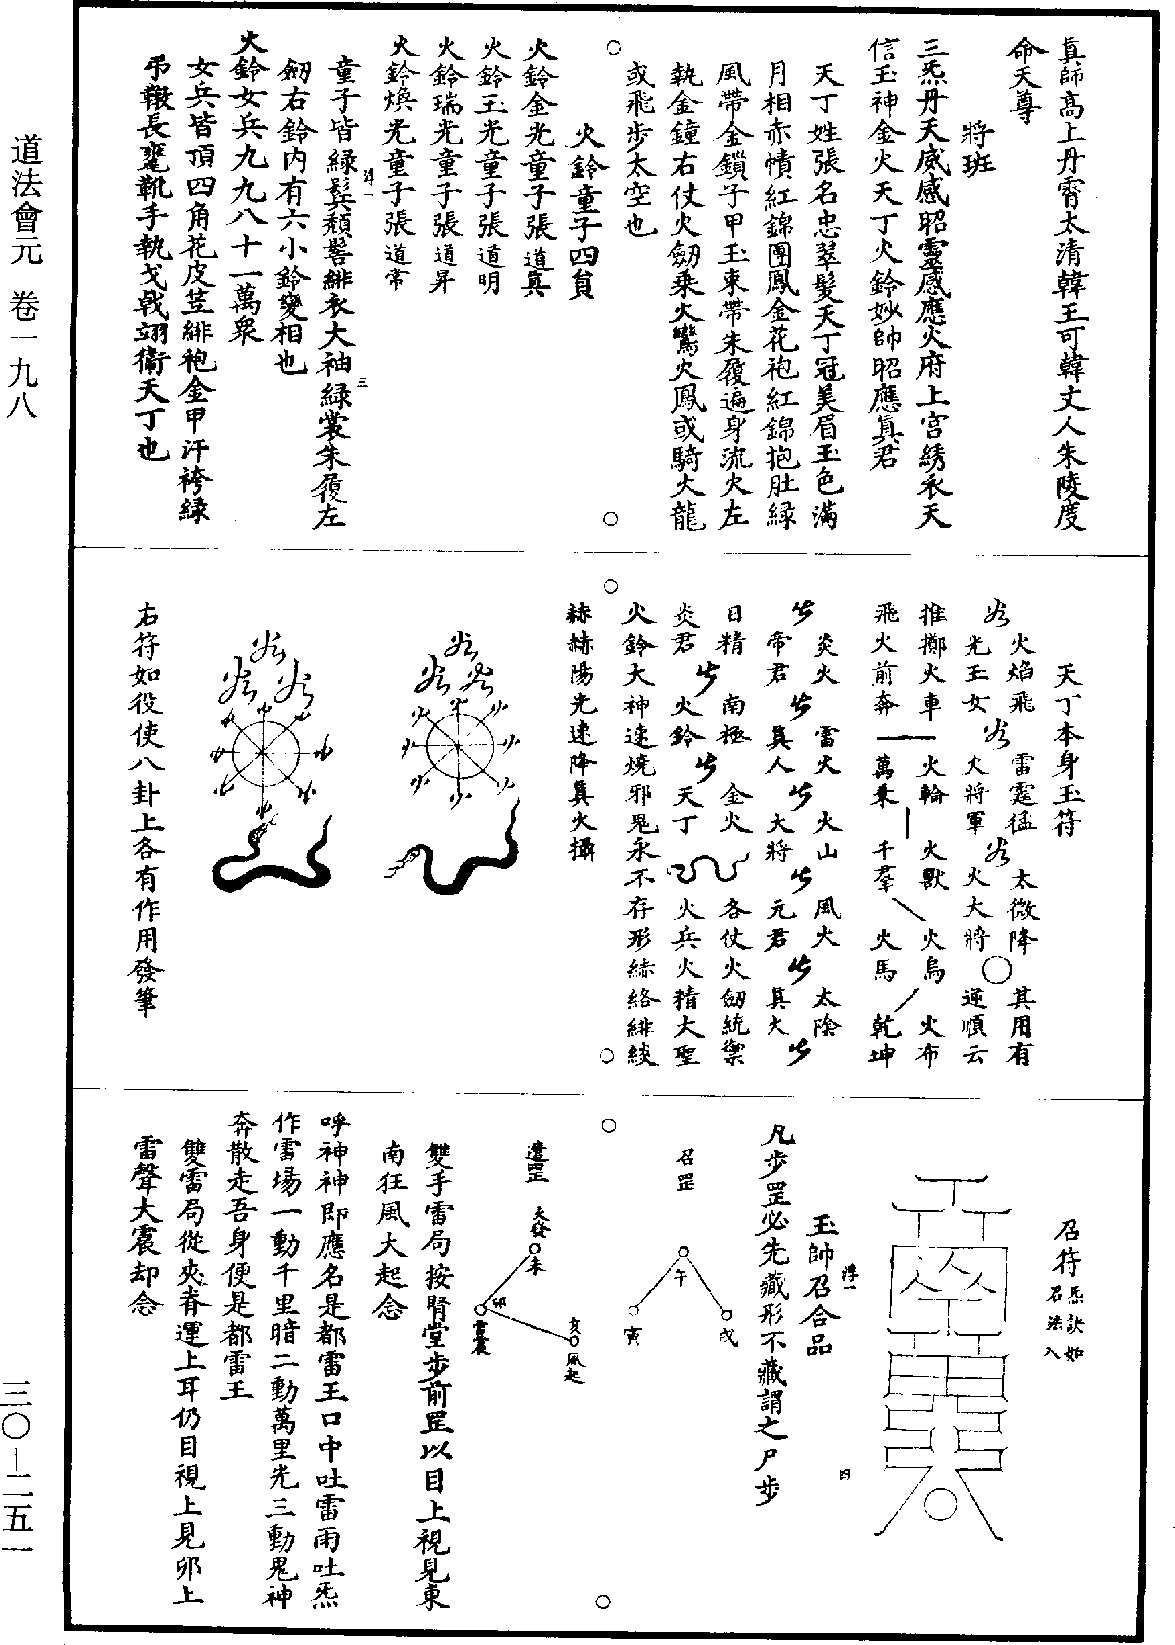 道法會元　卷一九八
三〇—二五一
真師高上丹霄太清韓王可韓丈人朱陵度
命天尊
將班
三炁丹天威感昭靈感應火府上宫綉衣天
信玉神金火天丁火鈴妙帥昭應真君
天丁姓張名忠翠髮天丁冠美眉玉色滿
月相赤幘紅錦團鳳金花袍紅錦抱肚緑
風帶金鎖子甲玉束帶朱履遍身流火左
執金鐘右仗火劒乘火鸞火鳳或騎火龍
或飛步太空也
火鈴童子四員
火鈴金光童子張道真
火鈴玉光童子張道明
火鈴瑞光童子張道昇
火鈴煥光童子張道常
童子皆緑鬓頹髻緋衣大袖緑裳朱履左
劒右鈴内有六小鈴變相也
火鈴女兵九九八十一萬衆
女兵皆頂四角花皮笠緋袍金甲汗袴緑
弔鞍長鞾靴手執戈戟翊衛天丁也
三
天丁本身玉符
火焰飛　雷霆猛　太微降　其用有
光玉女　火將軍　火大將　逆順云
推擲火車　火輪　火獸　火鳥　火布
飛火前奔　萬乘　千羣　火馬　乾坤
炎火　雷火　火山　風火　太陰
帝君　真人　大將　元君　真火
日精　南極　金火　各仗火劒統禦
炎君　火鈴　天丁　火兵火精大聖
火鈴大神速燒邪鬼永不存形絲絡緋綾
赫赫陽光速降真火攝
右符如役使八卦上各有作用發筆
召符炁訣如召法入
玉帥召合品
凡步罡必先藏形不藏謂之尸步
四
召罡
午
寅
戌
遣罡
火發
未
卯
雷震
亥
風起
雙手雷局按腎堂步前罡以目上視見東
南狂風大起念
呼神神即應名是都雷王口中吐雷雨吐炁
作雷場一動千里暗二動萬里光三動鬼神
奔散走吾身便是都雷王
雙雷局從夾脊運上耳仍目視上見卯上
雷聲大震却念